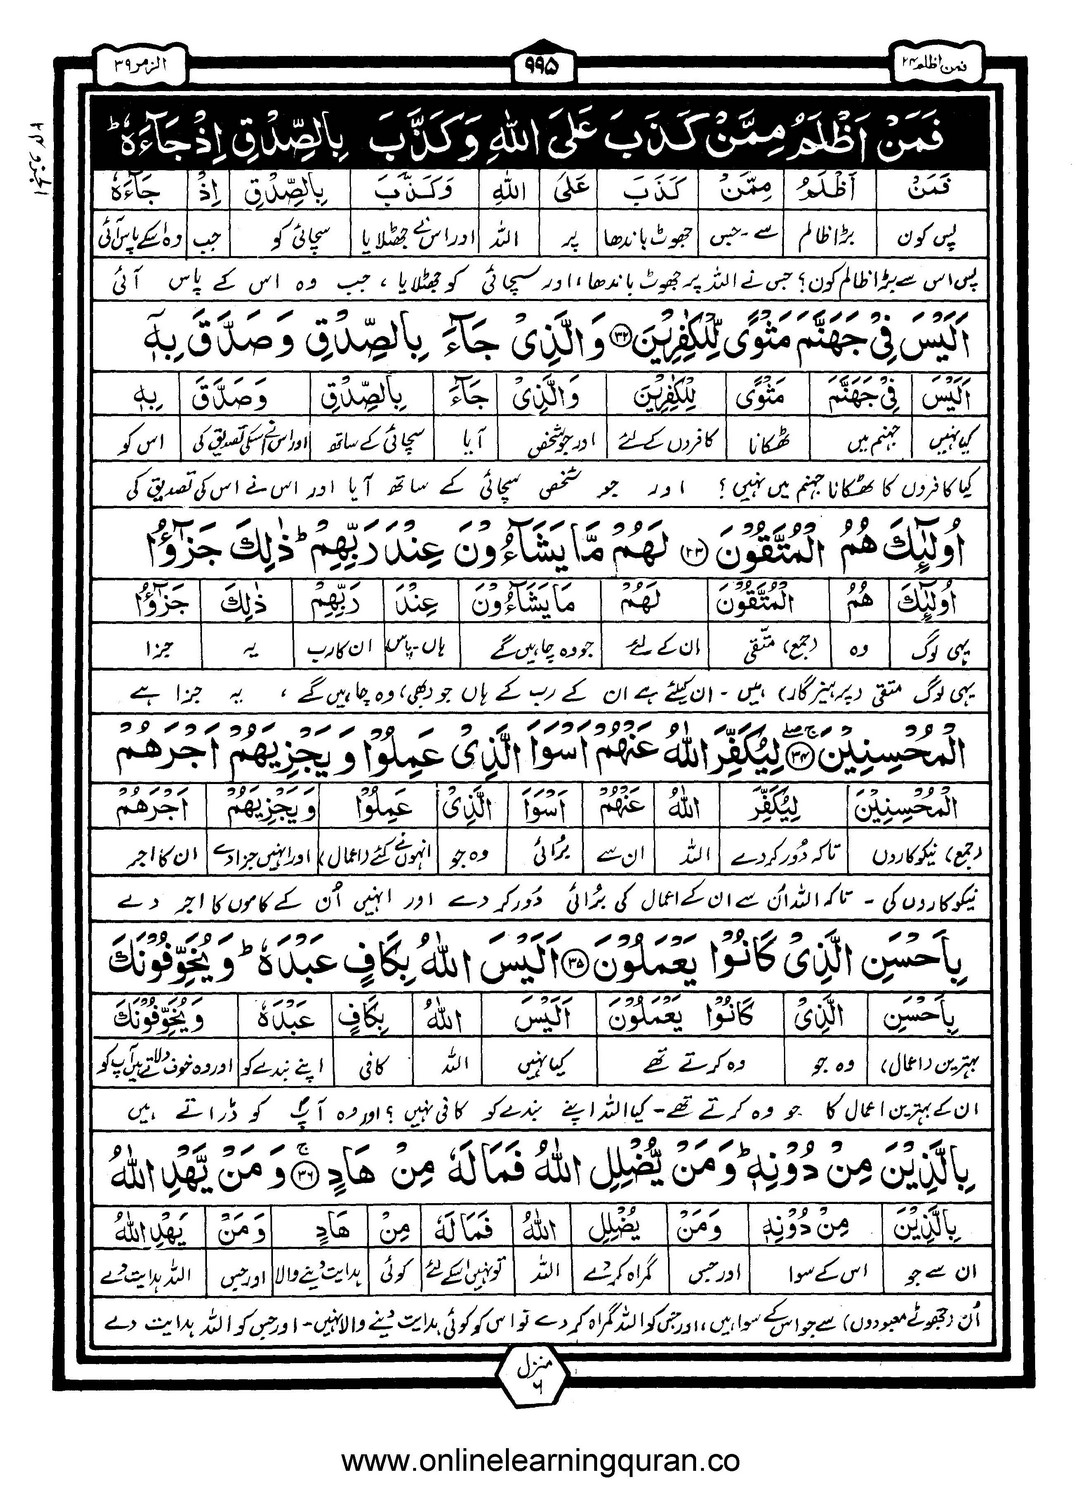 فمن اظلم ۲۴
۹۹۵
الزمر ۳۹
الجزء ۲۴
فَمَنْ اَظْلَمُ مِمَّنْ كَذَبَ عَلَی اللّٰهِ وَكَذَّبَ بِالصِّدْقِ اِذْ جَآءَهٗ ؕ
فَمَنْ اَظْلَمُ مِمَّنْ كَذَبَ عَلَی اللّٰهِ وَكَذَّبَ بِالصِّدْقِ اِذْ جَآءَهٗ
پس کون بڑا ظالم سے۔ جس جھوٹ باندھا پر اللہ اور اس نے جھٹلایا سچائی کو جب وہ اسکے پاس آئی
پس اس سے بڑا ظالم کون؟ جس نے اللہ پر جھوٹ باندھا، اور سچائی کو جھٹلایا، جب وہ اس کے پاس آئی
اَلَیْسَ فِیْ جَهَنَّمَ مَثْوًی لِّلْكٰفِرِیْنَ ۳۲ وَالَّذِیْ جَآءَ بِالصِّدْقِ وَصَدَّقَ بِهٖۤ
اَلَیْسَ فِیْ جَهَنَّمَ مَثْوًی لِلْكٰفِرِیْنَ وَالَّذِیْ جَآءَ بِالصِّدْقِ وَصَدَّقَ بِهٖۤ
کیا نہیں جہنم میں ٹھکانا کافروں کے لئے اور جو شخص آیا سچائی کے ساتھ اور اس نے اسکی تصدیق کی اس کو
کیا کافروں کا ٹھکانا جہنم میں نہیں؟ اور جو شخص سچائی کے ساتھ آیا اور اس نے اس کی تصدیق کی
اُولٰٓئِكَ هُمُ الْمُتَّقُوْنَ ۳۳ لَهُمْ مَّا یَشَآءُوْنَ عِنْدَ رَبِّهِمْ ؕ ذٰلِكَ جَزٰٓؤُا
اُولٰٓئِكَ هُمُ الْمُتَّقُوْنَ لَهُمْ مَا یَشَآءُوْنَ عِنْدَ رَبِّهِمْ ذٰلِكَ جَزٰٓؤُا
یہی لوگ وہ (جمع) متقی ان کے لئے جو وہ چاہیں گے ہاں۔پاس ان کا رب یہ جزا
یہی لوگ متقی (پرہیزگار) ہیں۔ ان کیلئے ہے ان کے رب کے ہاں جو (بھی) وہ چاہیں گے، یہ جزا ہے
الْمُحْسِنِیْنَ ۳۴ لِیُكَفِّرَ اللّٰهُ عَنْهُمْ اَسْوَاَ الَّذِیْ عَمِلُوْا وَیَجْزِیَهُمْ اَجْرَهُمْ
الْمُحْسِنِیْنَ لِیُكَفِّرَ اللّٰهُ عَنْهُمْ اَسْوَاَ الَّذِیْ عَمِلُوْا وَیَجْزِیَهُمْ اَجْرَهُمْ
(جمع) نیکوکاروں تاکہ دُور کردے اللہ ان سے بُرائی وہ جو انہوں نے کئے (اعمال) اور انہیں جزا دے ان کا اجر
نیکوکاروں کی۔ تاکہ اللہ اُن سے ان کے اعمال کی بُرائی دُور کر دے اور انہیں اُن کے کاموں کا اجر دے
بِاَحْسَنِ الَّذِیْ كَانُوْا یَعْمَلُوْنَ ۳۵ اَلَیْسَ اللّٰهُ بِكَافٍ عَبْدَهٗ ؕ وَیُخَوِّفُوْنَكَ
بِاَحْسَنِ الَّذِیْ كَانُوْا یَعْمَلُوْنَ اَلَیْسَ اللّٰهُ بِكَافٍ عَبْدَهٗ وَیُخَوِّفُوْنَكَ
بہترین (اعمال) وہ جو وہ کرتے تھے کیا نہیں اللہ کافی اپنے بندے کو اور وہ خوف دلاتے ہیں آپ کو
ان کے بہترین اعمال کا جو وہ کرتے تھے۔ کیا اللہ اپنے بندے کو کافی نہیں؟ اور وہ آپ کو ڈراتے ہیں
بِالَّذِیْنَ مِنْ دُوْنِهٖ ؕ وَمَنْ یُّضْلِلِ اللّٰهُ فَمَا لَهٗ مِنْ هَادٍ ۳۶ وَمَنْ یَّهْدِ اللّٰهُ
بِالَّذِیْنَ مِنْ دُوْنِهٖ وَمَنْ یُضْلِلِ اللّٰهُ فَمَا لَهٗ مِنْ هَادٍ وَمَنْ یَهْدِ اللّٰهُ
ان سے جو اس کے سوا اور جس گمراہ کر دے اللہ تو نہیں اسکے لئے کوئی ہدایت دینے والا اور جس اللہ ہدایت دے
اُن (جھوٹے معبودوں) سے جو اس کے سوا ہیں، اور جس کو اللہ گمراہ کر دے تو اس کو کوئی ہدایت دینے والا نہیں۔ اور جس کو اللہ ہدایت دے
منزل
۶
www.onlinelearningquran.co